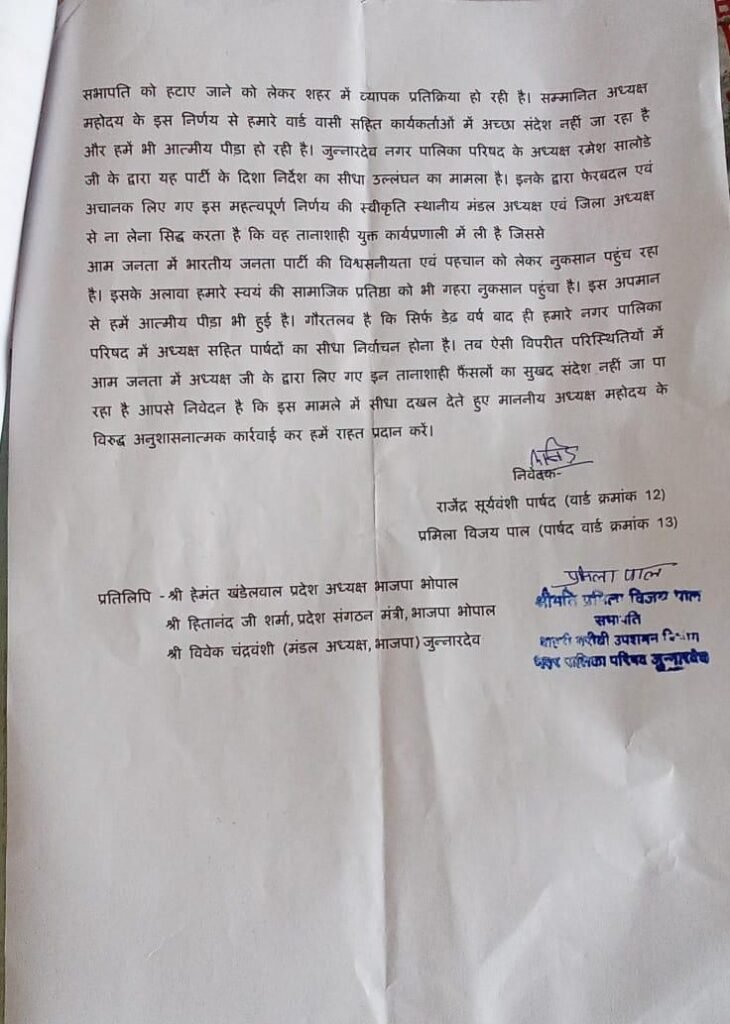 सभापति को हटाए जाने को लेकर शहर में व्यापक प्रतिक्रिया हो रही है। सम्मानित अध्यक्ष
महोदय के इस निर्णय से हमारे वार्ड वासी सहित कार्यकर्ताओं में अच्छा संदेश नहीं जा रहा है
और हमें भी आत्मीय पीड़ा हो रही है। जुन्नारदेव नगर पालिका परिषद के अध्यक्ष रमेश सालोडे
जी के द्वारा यह पार्टी के दिशा निर्देश का सीधा उल्लंघन का मामला है। इनके द्वारा फेरबदल एवं
अचानक लिए गए इस महत्वपूर्ण निर्णय की स्वीकृति स्थानीय मंडल अध्यक्ष एवं जिला अध्यक्ष
से ना लेना सिद्ध करता है कि वह तानाशाही युक्त कार्यप्रणाली में ली है जिससे
आम जनता में भारतीय जनता पार्टी की विश्वसनीयता एवं पहचान को लेकर नुकसान पहुंच रहा
है। इसके अलावा हमारे स्वयं की सामाजिक प्रतिष्ठा को भी गहरा नुकसान पहुंचा है। इस अपमान
से हमें आत्मीय पीड़ा भी हुई है। गौरतलब है कि सिर्फ डेढ़ वर्ष बाद ही हमारे नगर पालिका
परिषद में अध्यक्ष सहित पार्षदों का सीधा निर्वाचन होना है। तब ऐसी विपरीत परिस्थितियों में
आम जनता में अध्यक्ष जी के द्वारा लिए गए इन तानाशाही फैंसलों का सुखद संदेश नहीं जा पा
रहा है आपसे निवेदन है कि इस मामले में सीधा दखल देते हुए माननीय अध्यक्ष महोदय के
विरुद्ध अनुशासनात्मक कार्रवाई कर हमें राहत प्रदान करें।
निवेदक-
राजेंद्र सूर्यवंशी पार्षद (वार्ड क्रमांक 12)
प्रमिला विजय पाल (पार्षद वार्ड क्रमांक 13)
प्रतिलिपि - श्री हेमंत खंडेलवाल प्रदेश अध्यक्ष भाजपा भोपाल
श्री हितानंद जी शर्मा, प्रदेश संगठन मंत्री, भाजपा भोपाल
श्री विवेक चंद्रवंशी (मंडल अध्यक्ष, भाजपा) जुन्नारदेव
प्रमिला पाल
श्रीमति प्रमिला विजय पाल
सभापति
शहरी गरीबी उपशमन विभाग
नगर पालिका परिषद जुन्नारदेव